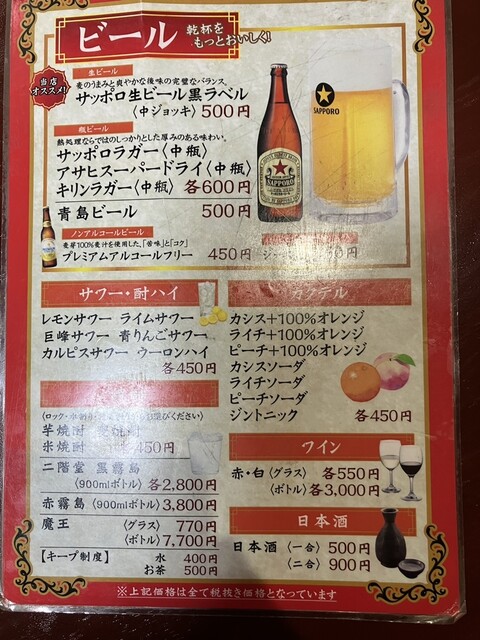 ビール 乾杯を
もっとおいしく!
当店
オススメ!
生ビール
麦のうまみと爽やかな後味の完璧なバランス。
サッポロ生ビール黒ラベル
〈中ジョッキ〉500円
瓶ビール
熱処理ならではのしっかりとした厚みのある味わい。
サッポロラガー〈中瓶〉
アサヒスーパードライ〈中瓶〉
キリンラガー〈中瓶〉 各600円
青島ビール 500円
ノンアルコールビール
麦芽100%麦汁を使用した、「苦味」と「コク」
プレミアムアルコールフリー 450円
SAPPORO
SAPPORO
サワー・酎ハイ
レモンサワー ライムサワー
巨峰サワー 青りんごサワー
カルピスサワー ウーロンハイ
各450円
芋焼酎
米焼酎 450円
二階堂 黒霧島
〈900mlボトル〉各2,800円
赤霧島〈900mlボトル〉3,800円
魔王 〈グラス〉 770円
〈ボトル〉7,700円
【キープ制度】 水 400円
お茶 500円
カクテル
カシス+100%オレンジ
ライチ+100%オレンジ
ピーチ+100%オレンジ
カシスソーダ
ライチソーダ
ピーチソーダ
ジントニック 各450円
ワイン
赤・白〈グラス〉 各550円
〈ボトル〉各3,000円
日本酒
日本酒〈一合〉500円
〈二合〉900円
※上記価格は全て税抜き価格となっています